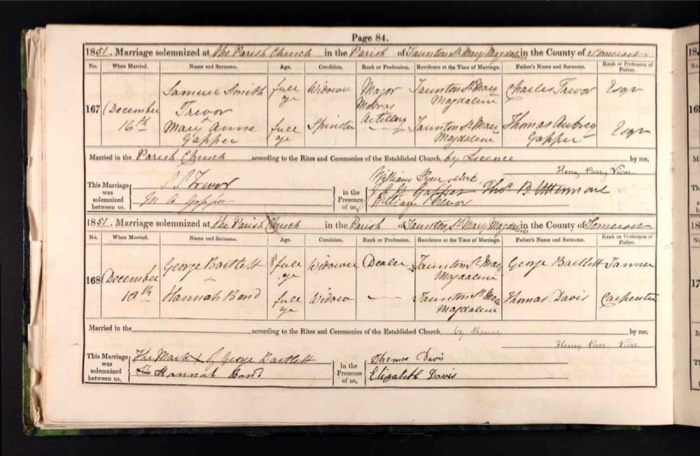 Page 84.
1851. Marriage solemnized at the Parish Church in the Parish of Taunton St Mary Magdalene in the County of Somerset
No. When Married. Name and Surname. Age. Condition. Rank or Profession. Residence at the Time of Marriage. Father's Name and Surname. Rank or Profession of Father.
167 December 16th Samuel Smith Trevor full age Widower Major Madras Artillery Taunton St Mary Magdalene Charles Trevor Esqr
Mary Anne Gapper full age Spinster Taunton St Mary Magdalene Thomas Aubrey Gapper Esqr
Married in the Parish Church according to the Rites and Ceremonies of the Established Church, by Licence by me,
Henry Parr, Vicar
This Marriage was solemnized between us,
S S Trevor
M A Gapper
in the Presence of us,
William
Gapper Thos B Uttermare
William Trevor
1851. Marriage solemnized at the Parish Church in the Parish of Taunton St Mary Magdalene in the County of Somerset
No. When Married. Name and Surname. Age. Condition. Rank or Profession. Residence at the Time of Marriage. Father's Name and Surname. Rank or Profession of Father.
168 December 18th George Bartlett full age Widower Dealer Taunton St Mary Magdalene George Bartlett Tanner
Hannah Bond full age Widow Taunton St Mary Magdalene Thomas Davis Carpenter
Married in the according to the Rites and Ceremonies of the Established Church, by Banns by me,
Henry Parr, Vicar
This Marriage was solemnized between us,
The Mark X of George Bartlett
Hannah Bond
in the Presence of us,
Thomas Davis
Elizabeth Davis